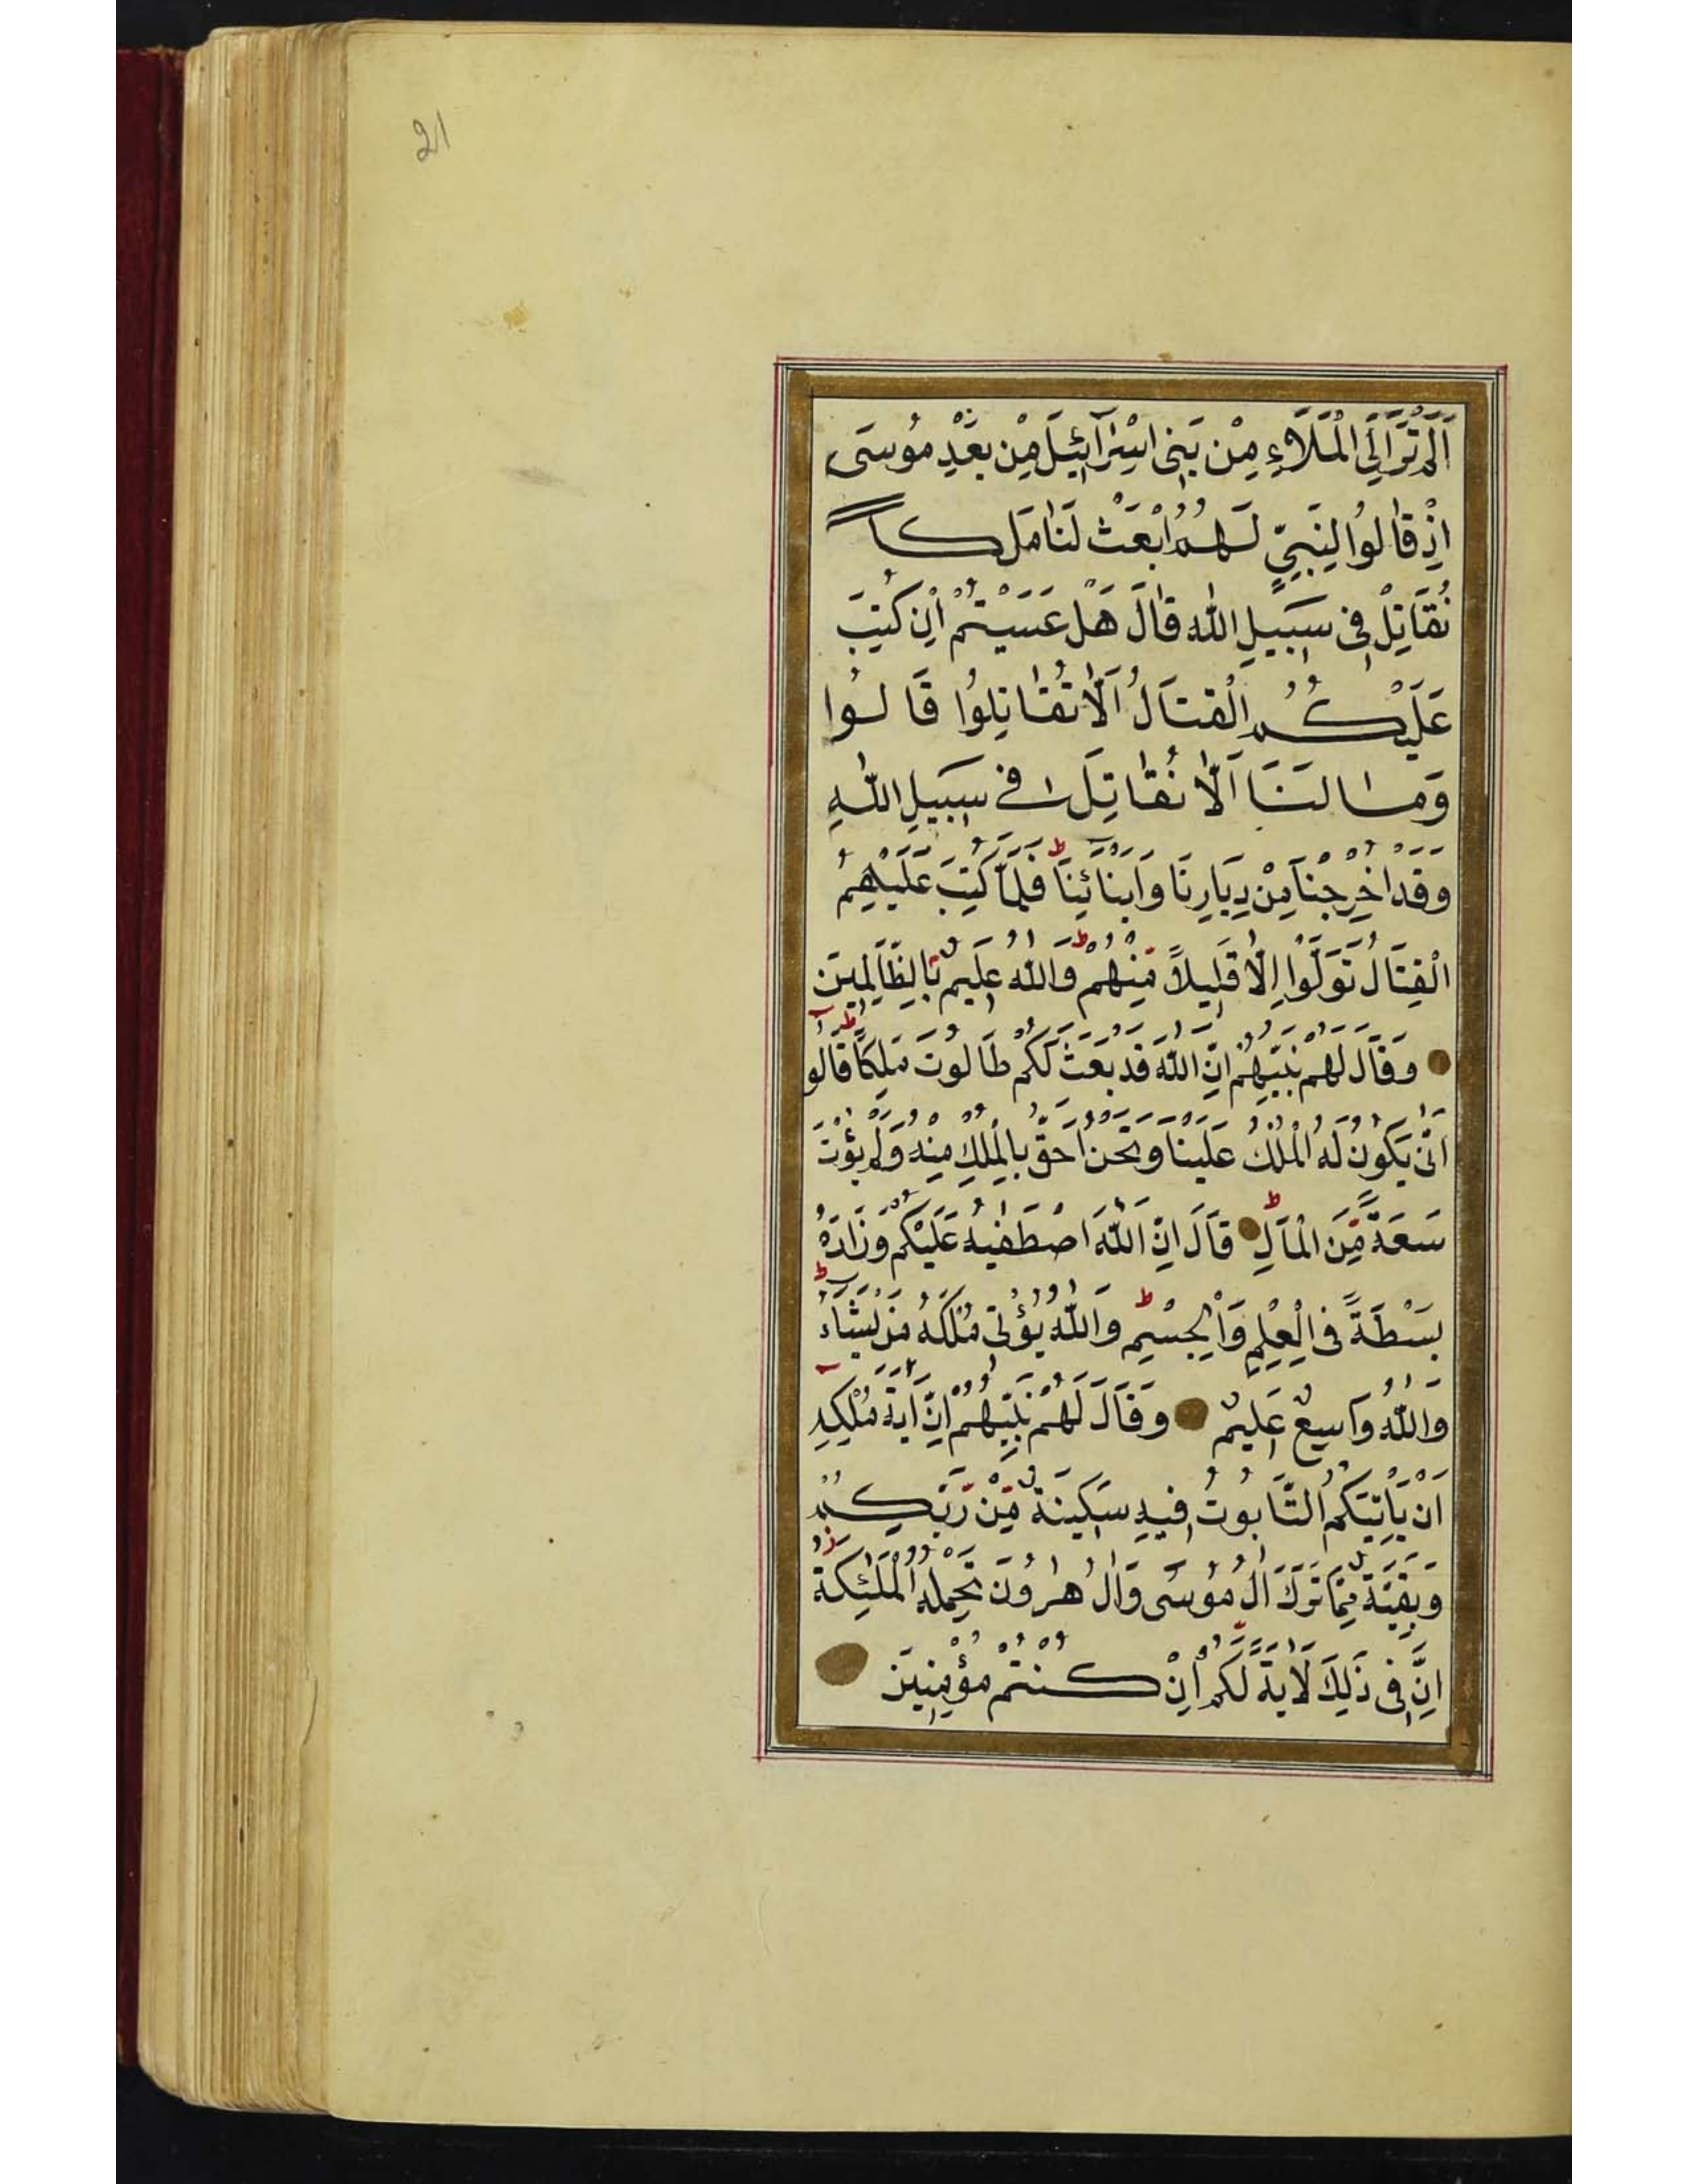 21
اَلَمْ تَرَ اِلَى الْمَلَاءِ مِنْ بَنِى اِسْرَآئِيلَ مِنْ بَعْدِ مُوسَى
اِذْ قَالُوا لِنَبِىٍّ لَهُمُ ابْعَثْ لَنَا مَلِكاً
نُقَاتِلْ فِى سَبِيلِ اللّٰهِ قَالَ هَلْ عَسَيْتُمْ اِنْ كُتِبَ
عَلَيْكُمُ الْقِتَالُ اَلَّا تُقَاتِلُوا قَالُوا
وَمَا لَنَا اَلَّا نُقَاتِلَ فِى سَبِيلِ اللّٰهِ
وَقَدْ اُخْرِجْنَا مِنْ دِيَارِنَا وَاَبْنَائِنَا ط فَلَمَّا كُتِبَ عَلَيْهِمُ
الْقِتَالُ تَوَلَّوْا اِلَّا قَلِيلاً مِنْهُمْ ط وَاللّٰهُ عَلِيمٌ بِالظَّالِمِينَ
وَقَالَ لَهُمْ نَبِيُّهُمْ اِنَّ اللّٰهَ قَدْ بَعَثَ لَكُمْ طَالُوتَ مَلِكاً ط قَالُوا
اَنّٰى يَكُونُ لَهُ الْمُلْكُ عَلَيْنَا وَنَحْنُ اَحَقُّ بِالْمُلْكِ مِنْهُ وَلَمْ يُؤْتَ
سَعَةً مِّنَ الْمَالِ ط قَالَ اِنَّ اللّٰهَ اصْطَفٰيهُ عَلَيْكُمْ وَزَادَهُ
بَسْطَةً فِى الْعِلْمِ وَالْجِسْمِ ط وَاللّٰهُ يُؤْتِى مُلْكَهُ مَنْ يَشَاءُ ط
وَاللّٰهُ وَاسِعٌ عَلِيمٌ وَقَالَ لَهُمْ نَبِيُّهُمْ اِنَّ اٰيَةَ مُلْكِهِ
اَنْ يَاْتِيَكُمُ التَّابُوتُ فِيهِ سَكِينَةٌ مِّنْ رَبِّكُمْ
وَبَقِيَّةٌ مِمَّا تَرَكَ اٰلُ مُوسَى وَاٰلُ هٰرُونَ تَحْمِلُهُ الْمَلٰئِكَةُ
اِنَّ فِى ذَلِكَ لَاٰيَةً لَكُمْ اِنْ كُنْتُمْ مُؤْمِنِينَ